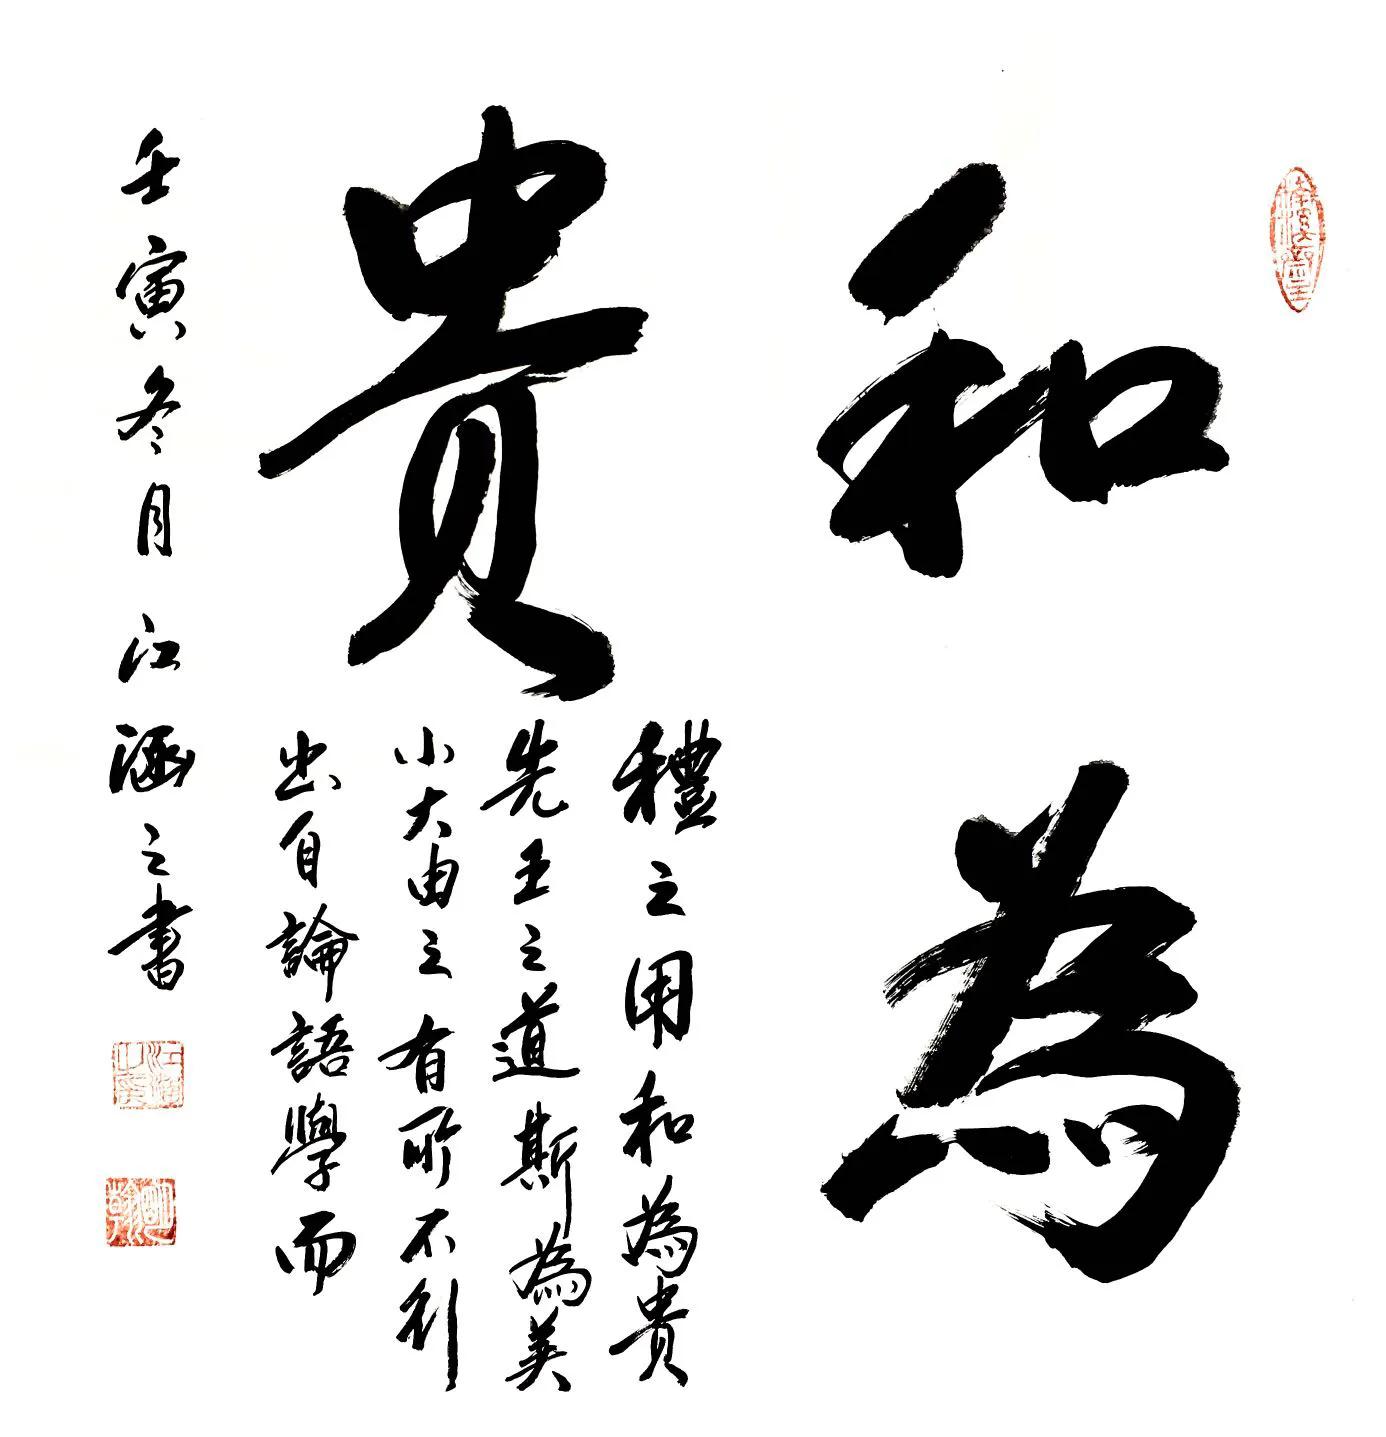 和為
貴
禮之用和為貴
先王之道斯為美
小大由之有所不行
出自論語學而
壬寅冬月江涵之書